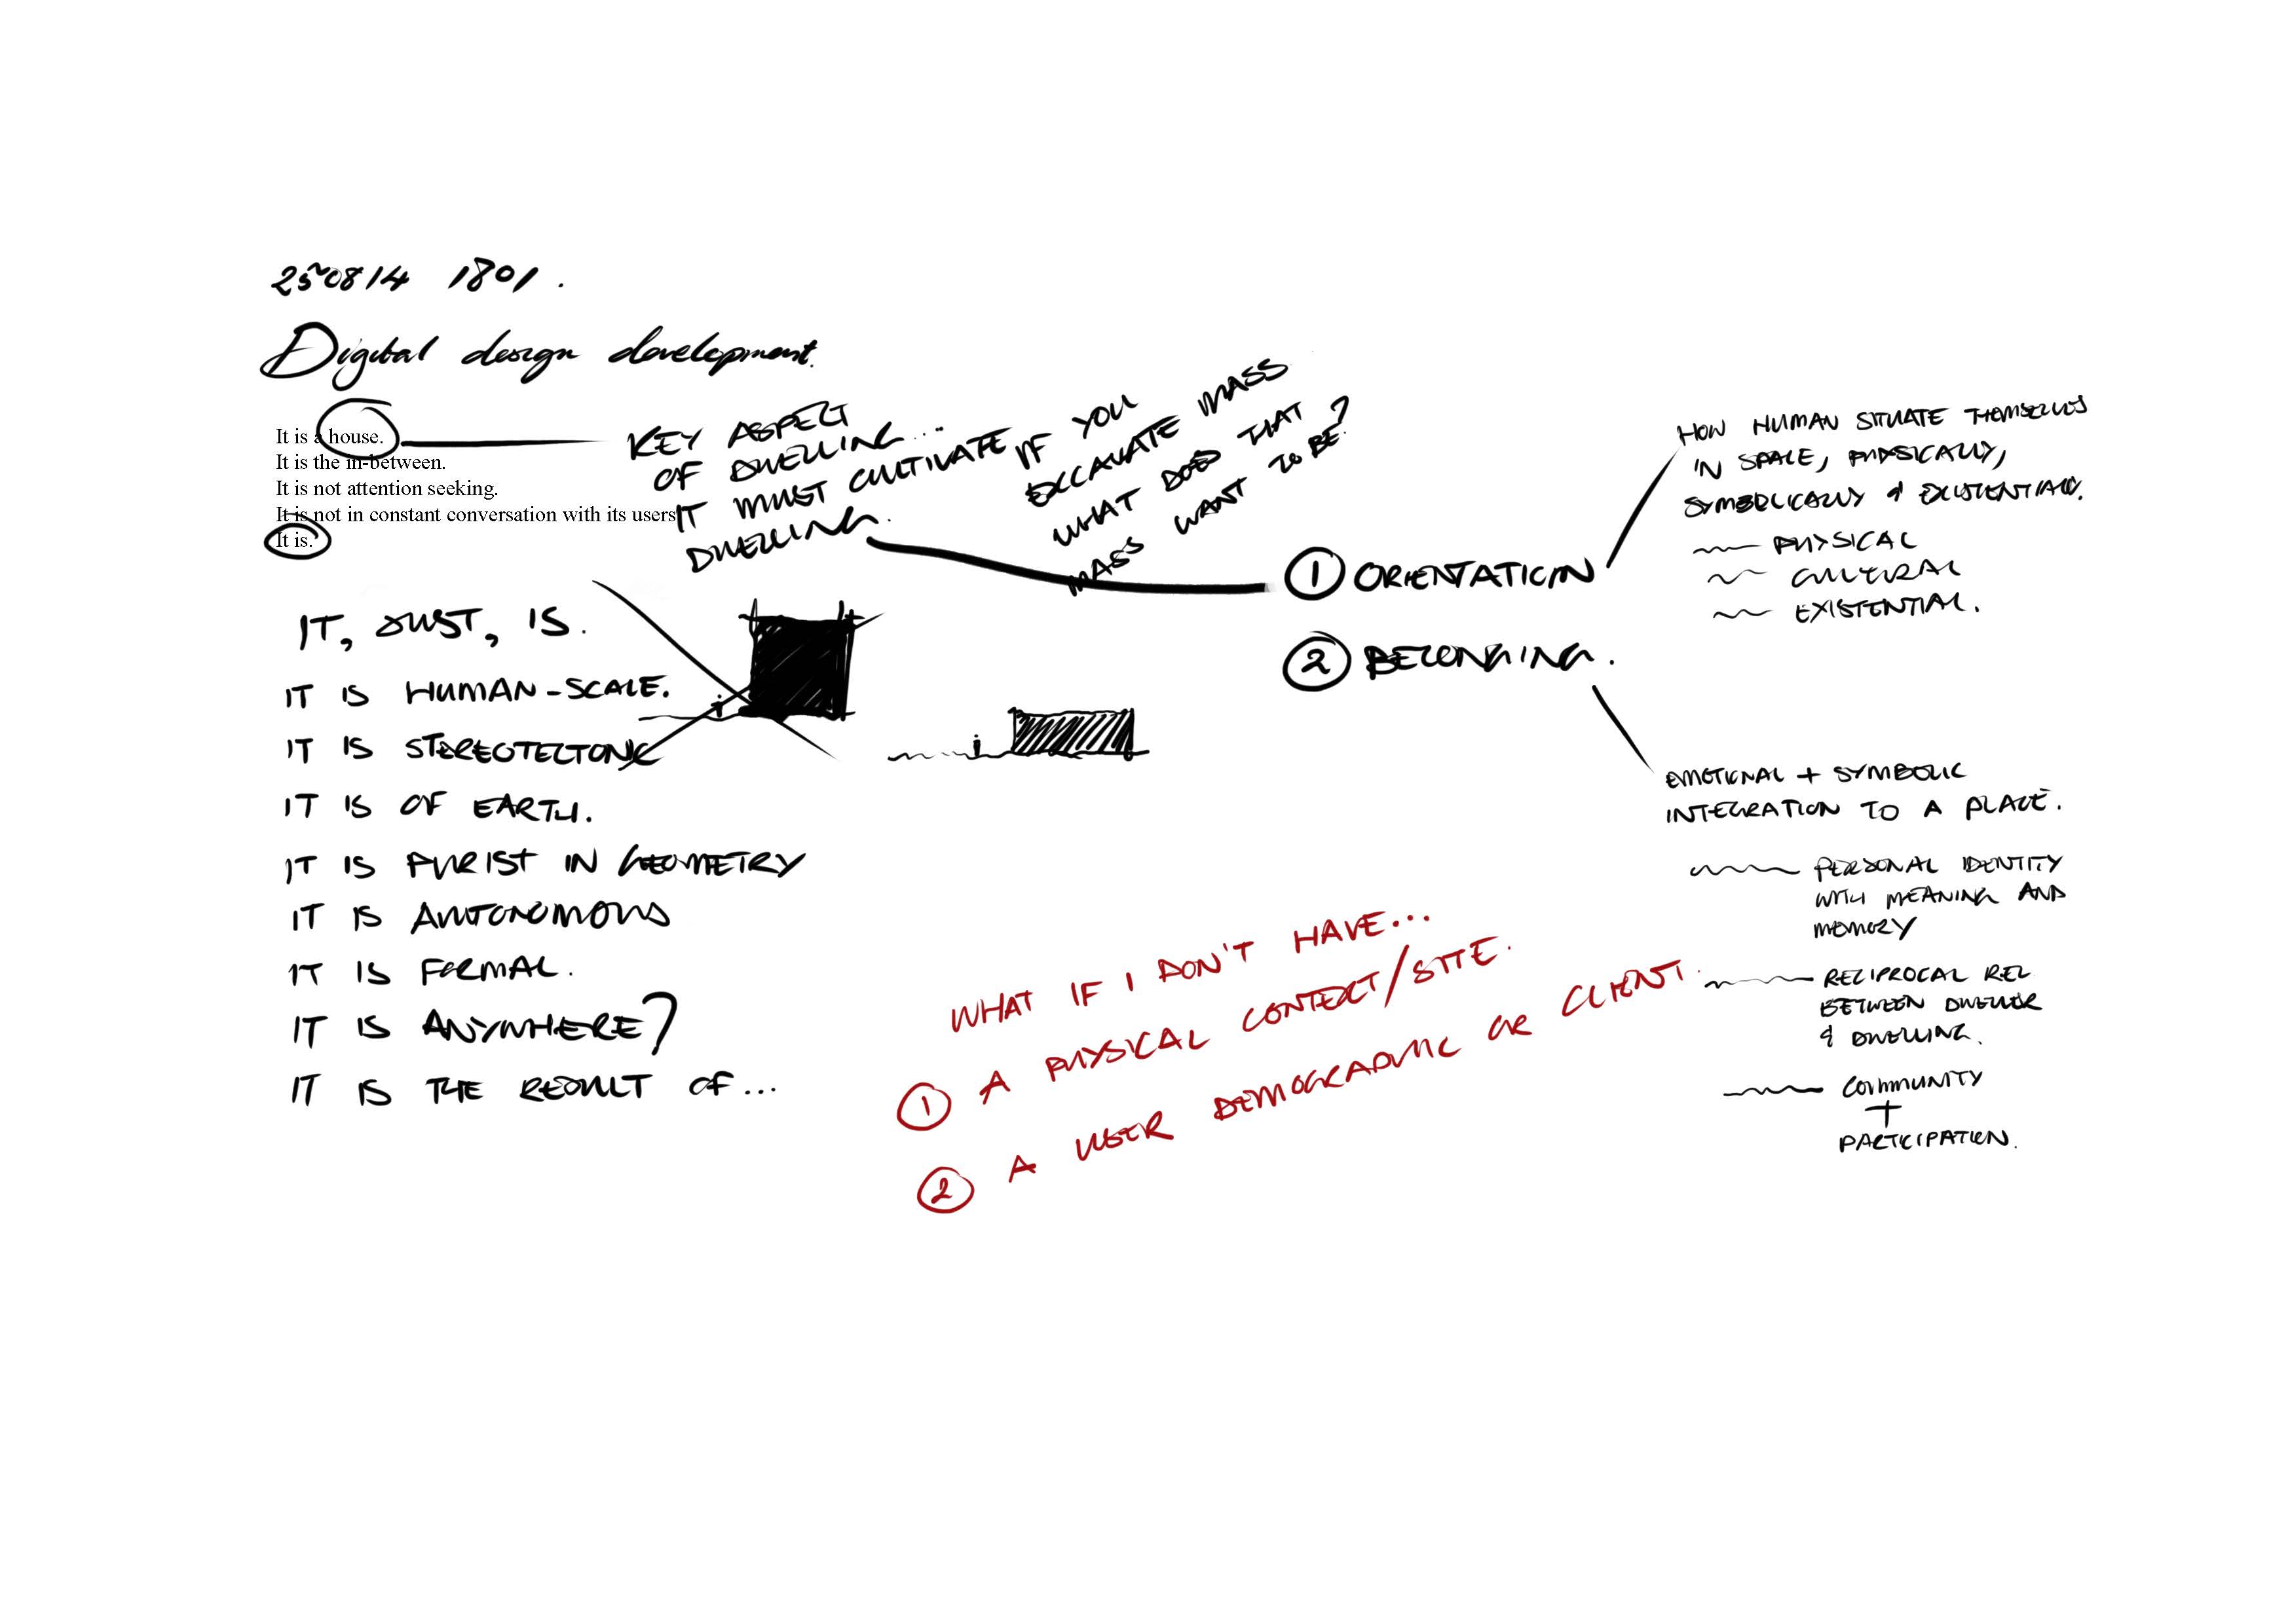 250814 1801.
Digital design development.
It is a house.
It is the in-between.
It is not attention seeking.
It is not in constant conversation with its users
It is.
KEY ASPECT
OF DWELLING...
IT MUST CULTIVATE
DWELLING.
IF YOU
EXCAVATE MASS
WHAT DOES THAT
MASS WANT TO BE?
① ORIENTATION
② BELONGING.
HOW HUMAN SITUATE THEMSELVES
IN SPACE, PHYSICALLY,
SYMBOLICALLY & EXISTENTIALLY.
PHYSICAL
CULTURAL
EXISTENTIAL.
EMOTIONAL + SYMBOLIC
INTEGRATION TO A PLACE.
PERSONAL IDENTITY
WITH MEANING AND
MEMORY
RECIPROCAL REL
BETWEEN DWELLER
& DWELLING.
COMMUNITY
+
PARTICIPATION.
IT, JUST, IS.
IT IS HUMAN-SCALE.
IT IS STEREOTECTONIC
IT IS OF EARTH.
IT IS PURIST IN GEOMETRY
IT IS AUTONOMOUS
IT IS FORMAL.
IT IS ANYWHERE?
IT IS THE RESULT OF...
WHAT IF I DON'T HAVE...
① A PHYSICAL CONTEXT/SITE.
② A USER DEMOGRAPHIC OR CLIENT.